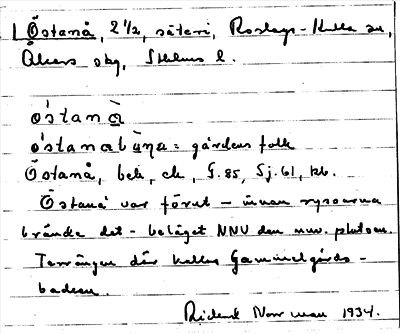 1 Östanå, 2 1/2, säteri, Roslags-Kulla sn,
Åkers skg, Sthlms l.
ö́stanà̱
ö́stanabùna = gårdens folk
Östanå, bek, ck, G. 85, Sj. 61, kb.
Östanå var förut – innan ryssarna
brände det – beläget NNV den nuv. platsen.
Terrängen där kallas Gammelgårds-
backen.
Rickard Norrman 1934.